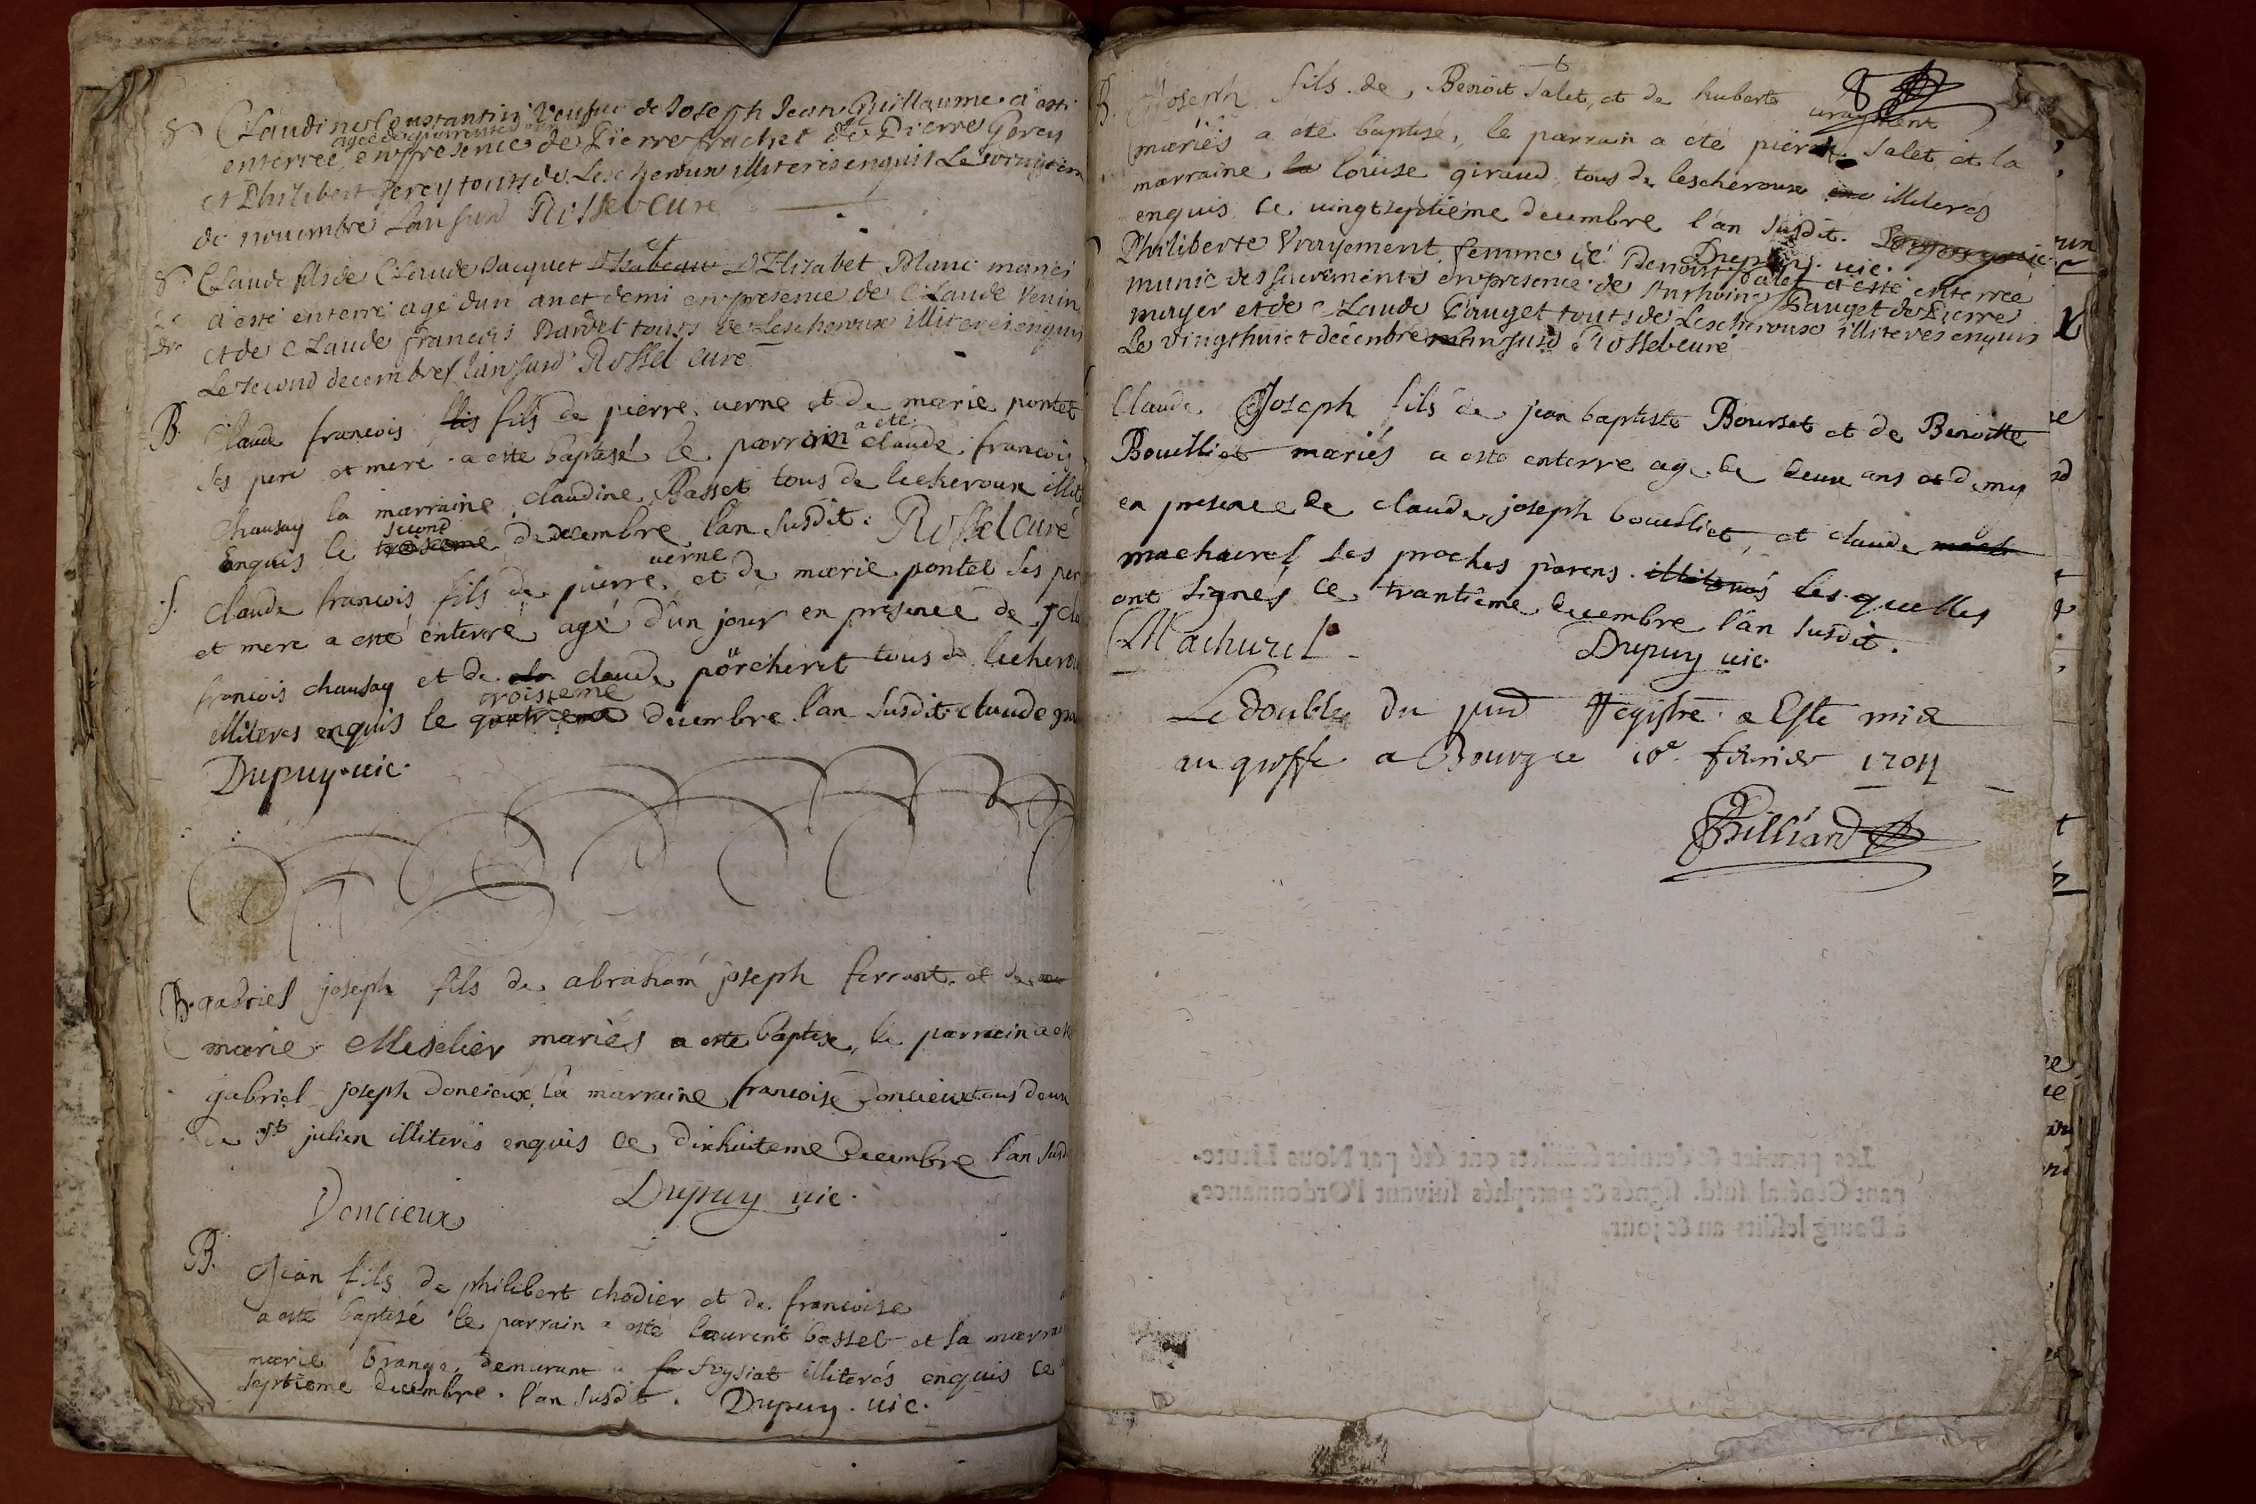 Claudine Constantin veufue de Joseph Jean Guillaume a esté
enterree en presence de Pierre frachet de Pierre Perey
et Philibert Perey touts de Lescheroux illiteres enquis Le
de nouembre Lan susd Rossel Cure
Claude fils de Claude Jacquet et D'Elizabet Blanc mariés
a esté enterré agé dun an et demi en presence de Claude Venin
et de Claude francois touts de Lescheroux illiteres enquis
Le second decembre lan susd Rossel curé
B. Claude francois fils de pierre uerne et de marie pontet
ses pere et mere a esté baptesé le parrain a ete claude francois
chausay la marraine claudine Basset tous de lecheroux illit
enquis le second de decembre l'an susdit. Rossel curé
S. claude francois fils de pierre uerne et de marie pontet ses per
et mere a esté enterré agé d'un jour en presence de
francois chausay et de claude porcheret tous de lecherou
illiteres enquis le troisieme decembre l'an susdit
Dupuy uic.
B. gabriel joseph fils de abraham joseph ferrant et de
marie Meselier mariés a esté baptise, le parrain a
gabriel joseph doncieux la marraine francoise doncieux tous deux
de st julien illiterés enquis ce dixhuiteme decembre l'an susd
Doncieux Dupuy uic.
B. Jean fils de philibert chodier et de francoise
a esté baptisé le parrain a esté laurent basset et la marrai
marie demurant a illiterés enquis ce
septieme decembre l'an susdit. Dupuy. uic.
8
B. Joseph fils de Benoit Salet, et de huberte urayment
mariés a eté baptisé, le parrain a été pierre Salet et la
marraine loüise giraud tous de lescheroux illiterés
enquis ce uingtseptiéme decembre l'an susdit.
Dupuy uic.
Philiberte Vrayement femme de Benoit Salet a esté enterree
munie des sacrements en presence de Anthoine Pauget de Pierre
mayer et de Claude Pauget touts de Lescheroux illiteres enquis
Le vingthuict decembre lan susd Rossel curé
Claude Joseph fils de jean baptiste Bourset et de Benoitte
Bouilliet mariés a esté enterre age de deux ans et demy
en presence de claude joseph bouilliet, et claude
machurel ses proches parens lesquelles
ont signés ce trantiême decembre l'an susdit.
Machurel Dupuy uic.
Le double du registre a Esté mis
au greffe a Bourg ce 10e feurier
Billiard
Les premier & dernier feuillets ont été par Nous Lieute-
nant Général susd. signés & paraphés suivant l'Ordonnance,
à Bourg lesdits an & jour.